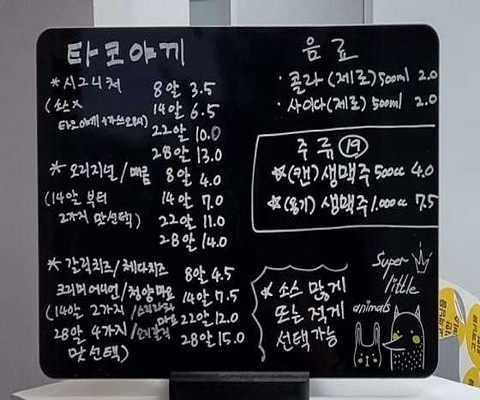 타코야끼
* 시그니처
8알 3.5
(소스X
14알 6.5
22알 10.0
28알 13.0
* 오리지널/매콤
8알 4.0
(14알 부터
14알 7.0
2가지 맛선택)
22알 11.0
28알 14.0
* 갈릭치즈/체다치즈
8알 4.5
크리미어니언/청양마요
14알 7.5
(14알 2가지
22알 12.0
28알 4가지
28알 15.0
맛선택)
음료
· 콜라 (제로) 500ml 2.0
· 사이다(제로) 500ml 2.0
주류 19
☆(캔) 생맥주 500cc 4.0
☆(용기) 생맥주 1.000cc 7.5
* 소스 많게
또는 적게
선택가능
Super
little
animals